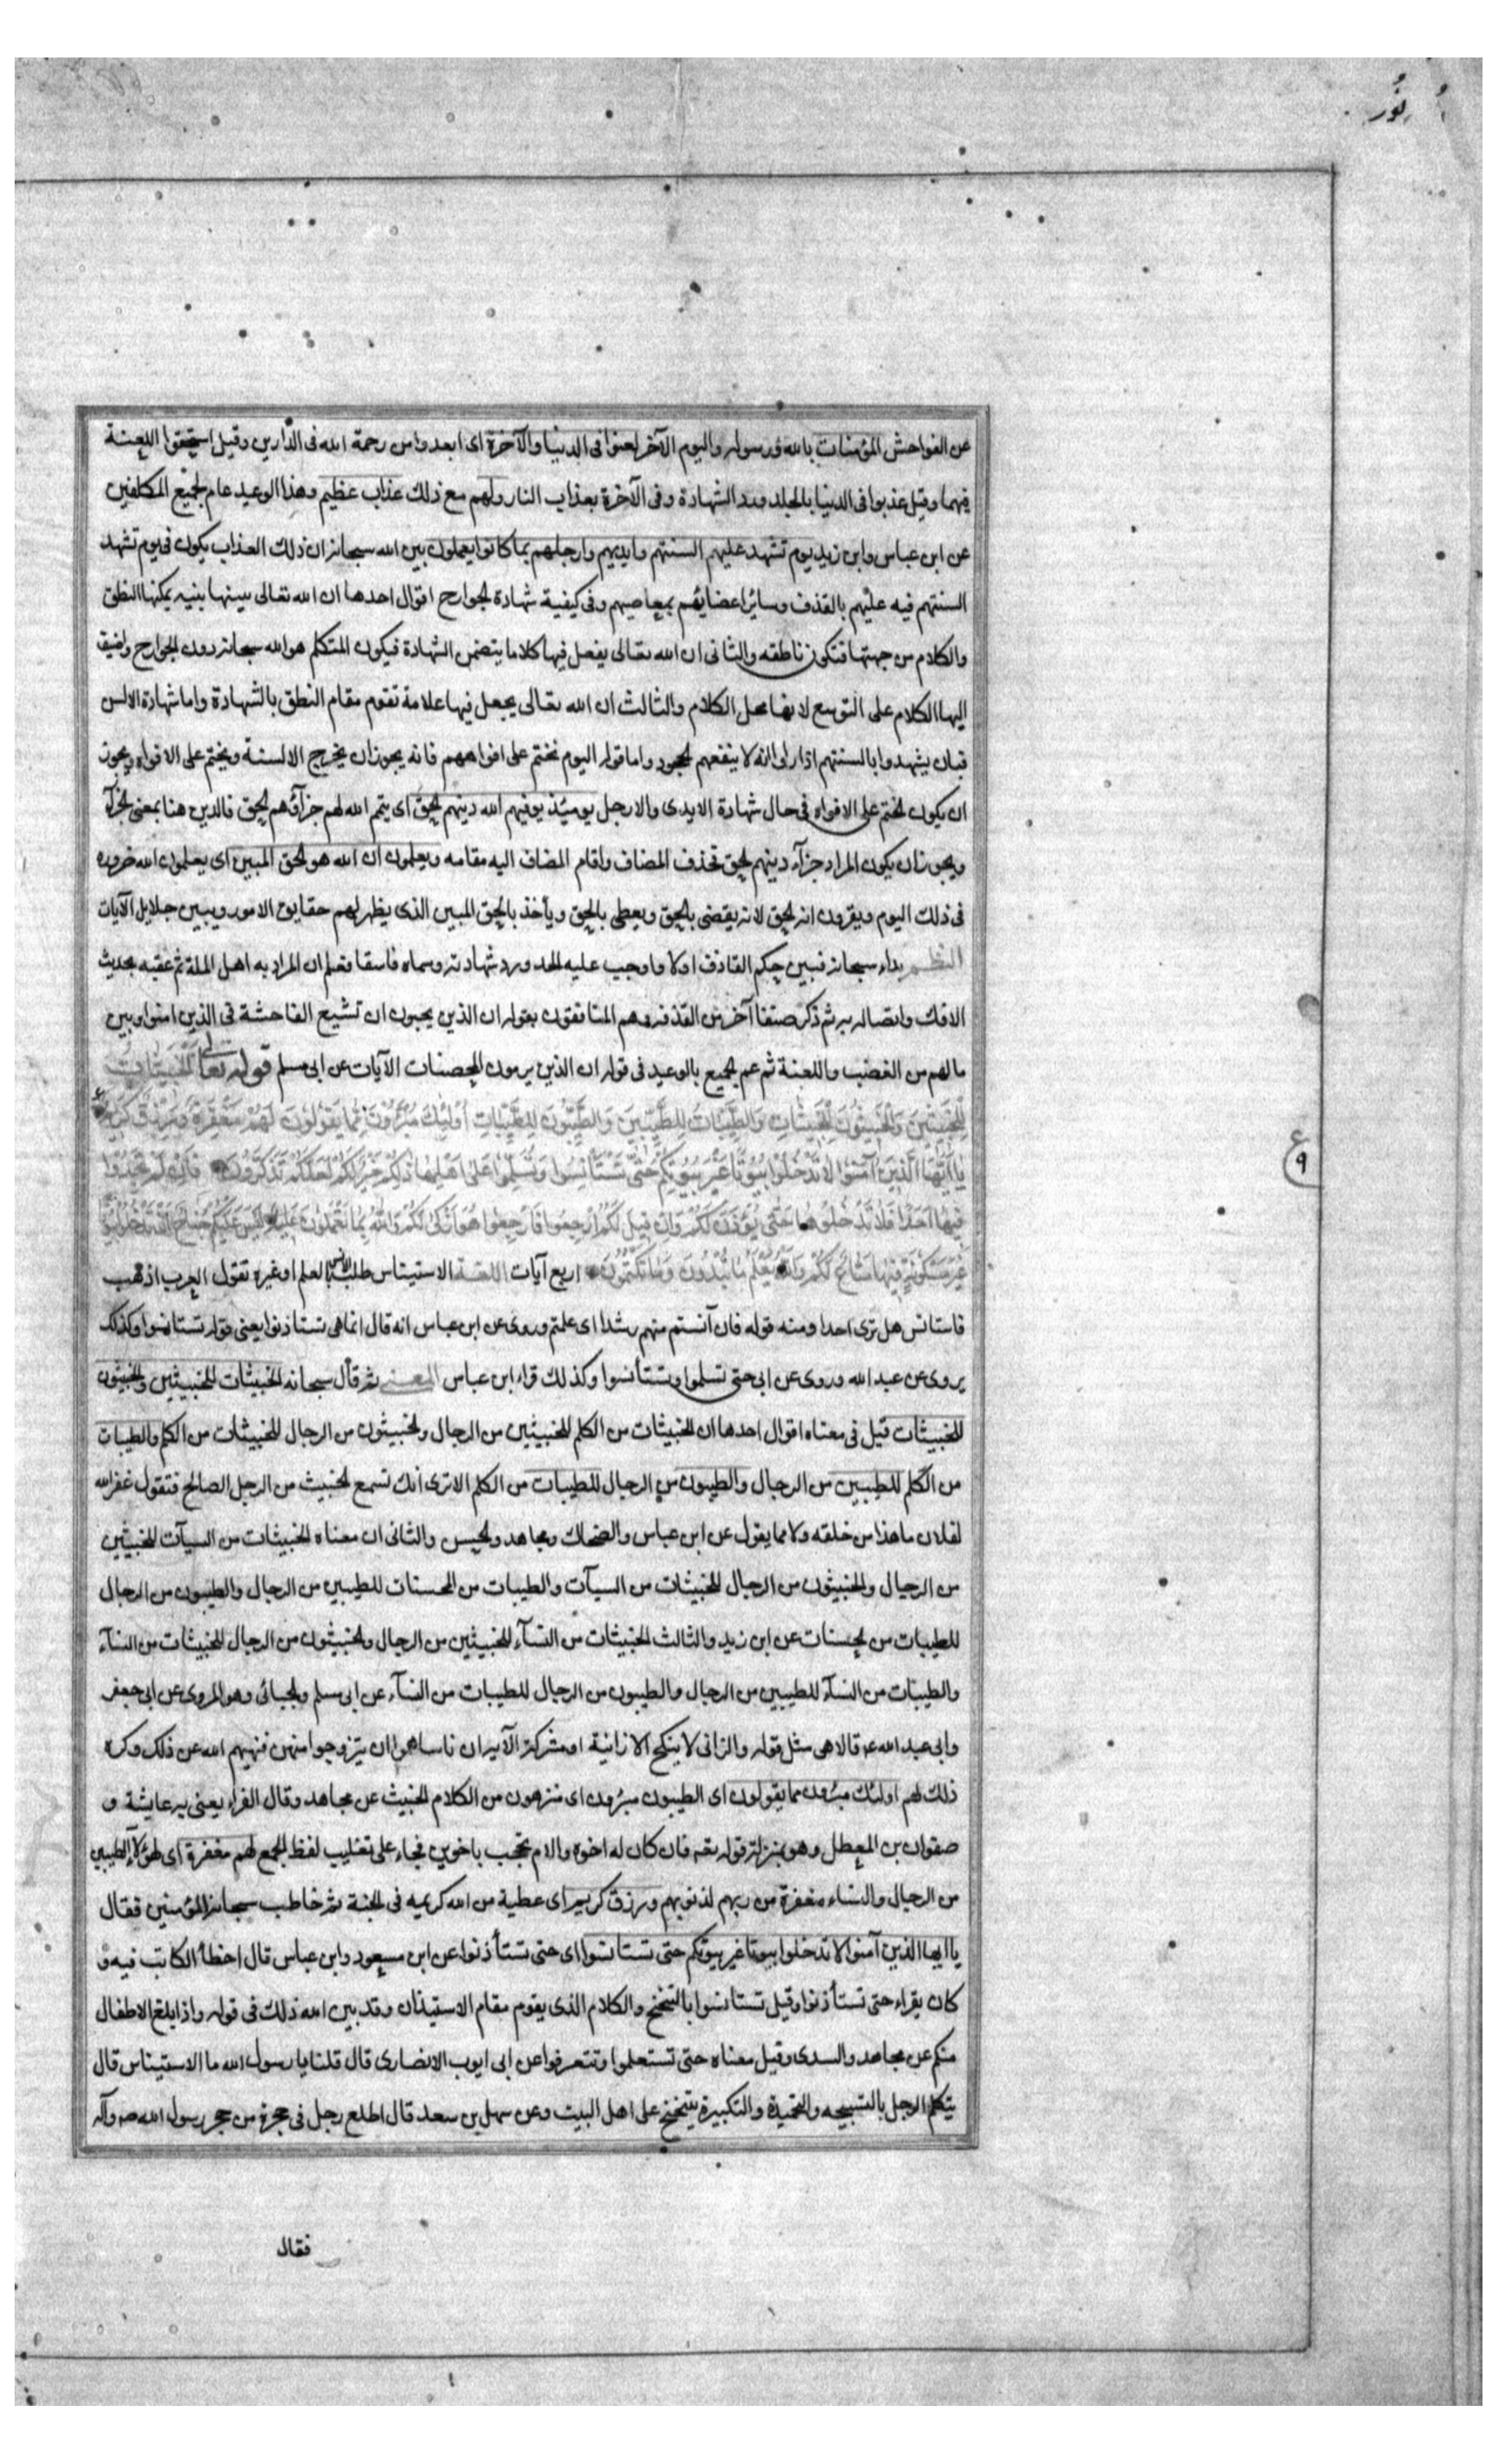 نُور
عن الفواحش المؤمنات بالله ورسوله واليوم الآخر لعنوا فى الدنيا والآخرة اى ابعدوا من رحمة الله فى الدارين وقيل استحقوا اللعنة
فيهما وقيل عذبوا فى الدنيا بالجلد ورد الشهادة وفى الآخرة بعذاب النار ولهم مع ذلك عذاب عظيم وهذا الوعيد عام لجميع المكلفين
عن ابن عباس وابن زيد يوم تشهد عليهم السنتهم وايديهم وارجلهم بما كانوا يعملون بين الله سبحانه ان ذلك العذاب يكون فى يوم تشهد
السنتهم فيه عليهم بالقذف وسائر اعضايهم بمعاصيهم وفى كيفية شهادة الجوارح اقوال احدها ان الله تعالى يبينها ببنيه يمكنها النطق
والكلام من جهتها فتكون ناطقه والثانى ان الله تعالى يفعل فيها كلاما يتضمن الشهادة فيكون المتكلم هو الله سبحانه دون الجوارح واضيف
اليها الكلام على التوسع لانها محل الكلام والثالث ان الله تعالى يجعل فيها علامة تقوم مقام النطق بالشهادة واما شهادة الالسن
فبان يشهدوا بالسنتهم اذا راى انه لا ينفعهم الجحود واما قوله اليوم نختم على افواههم فانه يجوز ان يخرج الالسنة ويختم على الافواه ويجوز
ان يكون الختم على الافواه فى حال شهادة الايدى والارجل يومئذ يوفيهم الله دينهم الحق اى يتم الله لهم جزآؤهم الحق فالدين هنا بمعنى الجزآء
ويجوز ان يكون المراد جزآء دينهم الحق فحذف المضاف واقام المضاف اليه مقامه ويعلمون ان الله هو الحق المبين اى يعلمون الله ضرورة
فى ذلك اليوم ويقرون انه الحق لانه يقضى بالحق ويعطى بالحق ويأخذ بالحق المبين الذى يظهر لهم حقايق الامور ويبين جلايل الآيات
النظم بداء سبحانه فبين حكم القاذف اولا وما وجب عليه الحد ورد شهادته وسماه فاسقا فعلم ان المراد به اهل الملة ثم عقبه بحديث
الافك واتصاله به ثم ذكر صنفا آخر من القذفه وهم المنافقون بقوله ان الذين يحبون ان تشيع الفاحشة فى الذين امنوا وبين
مالهم من الغضب واللعنة ثم عم الجميع بالوعيد فى قوله ان الذين يرمون المحصنات الآيات عن ابى مسلم قوله تعالى الْخَبِيثَاتُ
لِلْخَبِيثِينَ وَالْخَبِيثُونَ لِلْخَبِيثَاتِ وَالطَّيِّبَاتُ لِلطَّيِّبِينَ وَالطَّيِّبُونَ لِلطَّيِّبَاتِ أُولَئِكَ مُبَرَّؤُونَ مِمَّا يَقُولُونَ لَهُمْ مَغْفِرَةٌ وَرِزْقٌ كَرِيمٌ
ع
يَا أَيُّهَا الَّذِينَ آمَنُوا لَا تَدْخُلُوا بُيُوتًا غَيْرَ بُيُوتِكُمْ حَتَّى تَسْتَأْنِسُوا وَتُسَلِّمُوا عَلَى أَهْلِهَا ذَلِكُمْ خَيْرٌ لَكُمْ لَعَلَّكُمْ تَذَكَّرُونَ فَإِنْ لَمْ تَجِدُوا
ع ٩
فِيهَا أَحَدًا فَلَا تَدْخُلُوهَا حَتَّى يُؤْذَنَ لَكُمْ وَإِنْ قِيلَ لَكُمُ ارْجِعُوا فَارْجِعُوا هُوَ أَزْكَى لَكُمْ وَاللهُ بِمَا تَعْمَلُونَ عَلِيمٌ لَيْسَ عَلَيْكُمْ جُنَاحٌ أَنْ تَدْخُلُوا بُيُوتًا
غَيْرَ مَسْكُونَةٍ فِيهَا مَتَاعٌ لَكُمْ وَاللهُ يَعْلَمُ مَا تُبْدُونَ وَمَا تَكْتُمُونَ اربع آيات اللغة الاستيناس طلب الانس بالعلم او غيره تقول العرب اذهب
فاستانس هل ترى احدا ومنه قوله فان آنستم منهم رشدا اى علمتم وروى عن ابن عباس انه قال انما هى تستاذنوا يعنى قوله تستانسوا وكذلك
يروى عن عبد الله وروى عن ابى حتى تسلموا وتستأنسوا وكذلك قراء ابن عباس المعنى ثم قال سبحانه الخبيثات للخبيثين والخبيثون
للخبيثات قيل فى معناه اقوال احدها ان الخبيثات من الكلم للخبيثين من الرجال والخبيثون من الرجال للخبيثات من الكلم والطيبات
من الكلم للطيبين من الرجال والطيبون من الرجال للطيبات من الكلم الا ترى انك تسمع الخبيث من الرجل الصالح فتقول غفر الله
لفلان ما هذا من خلقه ولا مما يقول عن ابن عباس والضحاك ومجاهد والحسن والثانى ان معناه الخبيثات من السيآت للخبيثين
من الرجال والخبيثون من الرجال للخبيثات من السيآت والطيبات من الحسنات للطيبين من الرجال والطيبون من الرجال
للطيبات من الحسنات عن ابن زيد والثالث الخبيثات من النسآء للخبيثين من الرجال والخبيثون من الرجال للخبيثات من النسآء
والطيبات من النسآء للطيبين من الرجال والطيبون من الرجال للطيبات من النسآء عن ابى مسلم والجبائى وهو المروى عن ابى جعفر
وابى عبد الله ع قالا هى مثل قوله والزانى لا ينكح الا زانية او مشركة الآية ان ناسا هموا ان يتزوجوا منهن فنهيهم الله عن ذلك وكره
ذلك لهم اولئك مبرؤن مما يقولون اى الطيبون مبرؤن اى منزهون من الكلام الخبيث عن مجاهد وقال الفراء يعنى به عايشة و
صفوان بن المعطل وهو بمنزلة قوله تعه فان كان له اخوة والام تحجب باخوين فجاء على تغليب لفظ الجمع لهم مغفرة اى لهؤلآء الطيبين
من الرجال والنساء مغفرة من ربهم لذنوبهم ورزق كريم اى عطية من الله كريمه فى الجنة ثم خاطب سبحانه المؤمنين فقال
يا ايها الذين آمنوا لا تدخلوا بيوتا غير بيوتكم حتى تستانسوا اى حتى تستأذنوا عن ابن مسعود وابن عباس قال اخطأ الكاتب فيه و
كان يقراء حتى تستأذنوا وقيل تستانسوا بالتنحنح والكلام الذى يقوم مقام الاستيذان وقد بين الله ذلك فى قوله واذا بلغ الاطفال
منكم عن مجاهد والسدى وقيل معناه حتى تستعلموا وتتعرفوا عن ابى ايوب الانصارى قال قلنا يا رسول الله ما الاستيناس قال
يتكلم الرجل بالتسبيحه والتحميدة والتكبيرة يتنحنح على اهل البيت وعن سهل بن سعد قال اطلع رجل فى حجرة من حجر رسول الله صه وآله
فقال